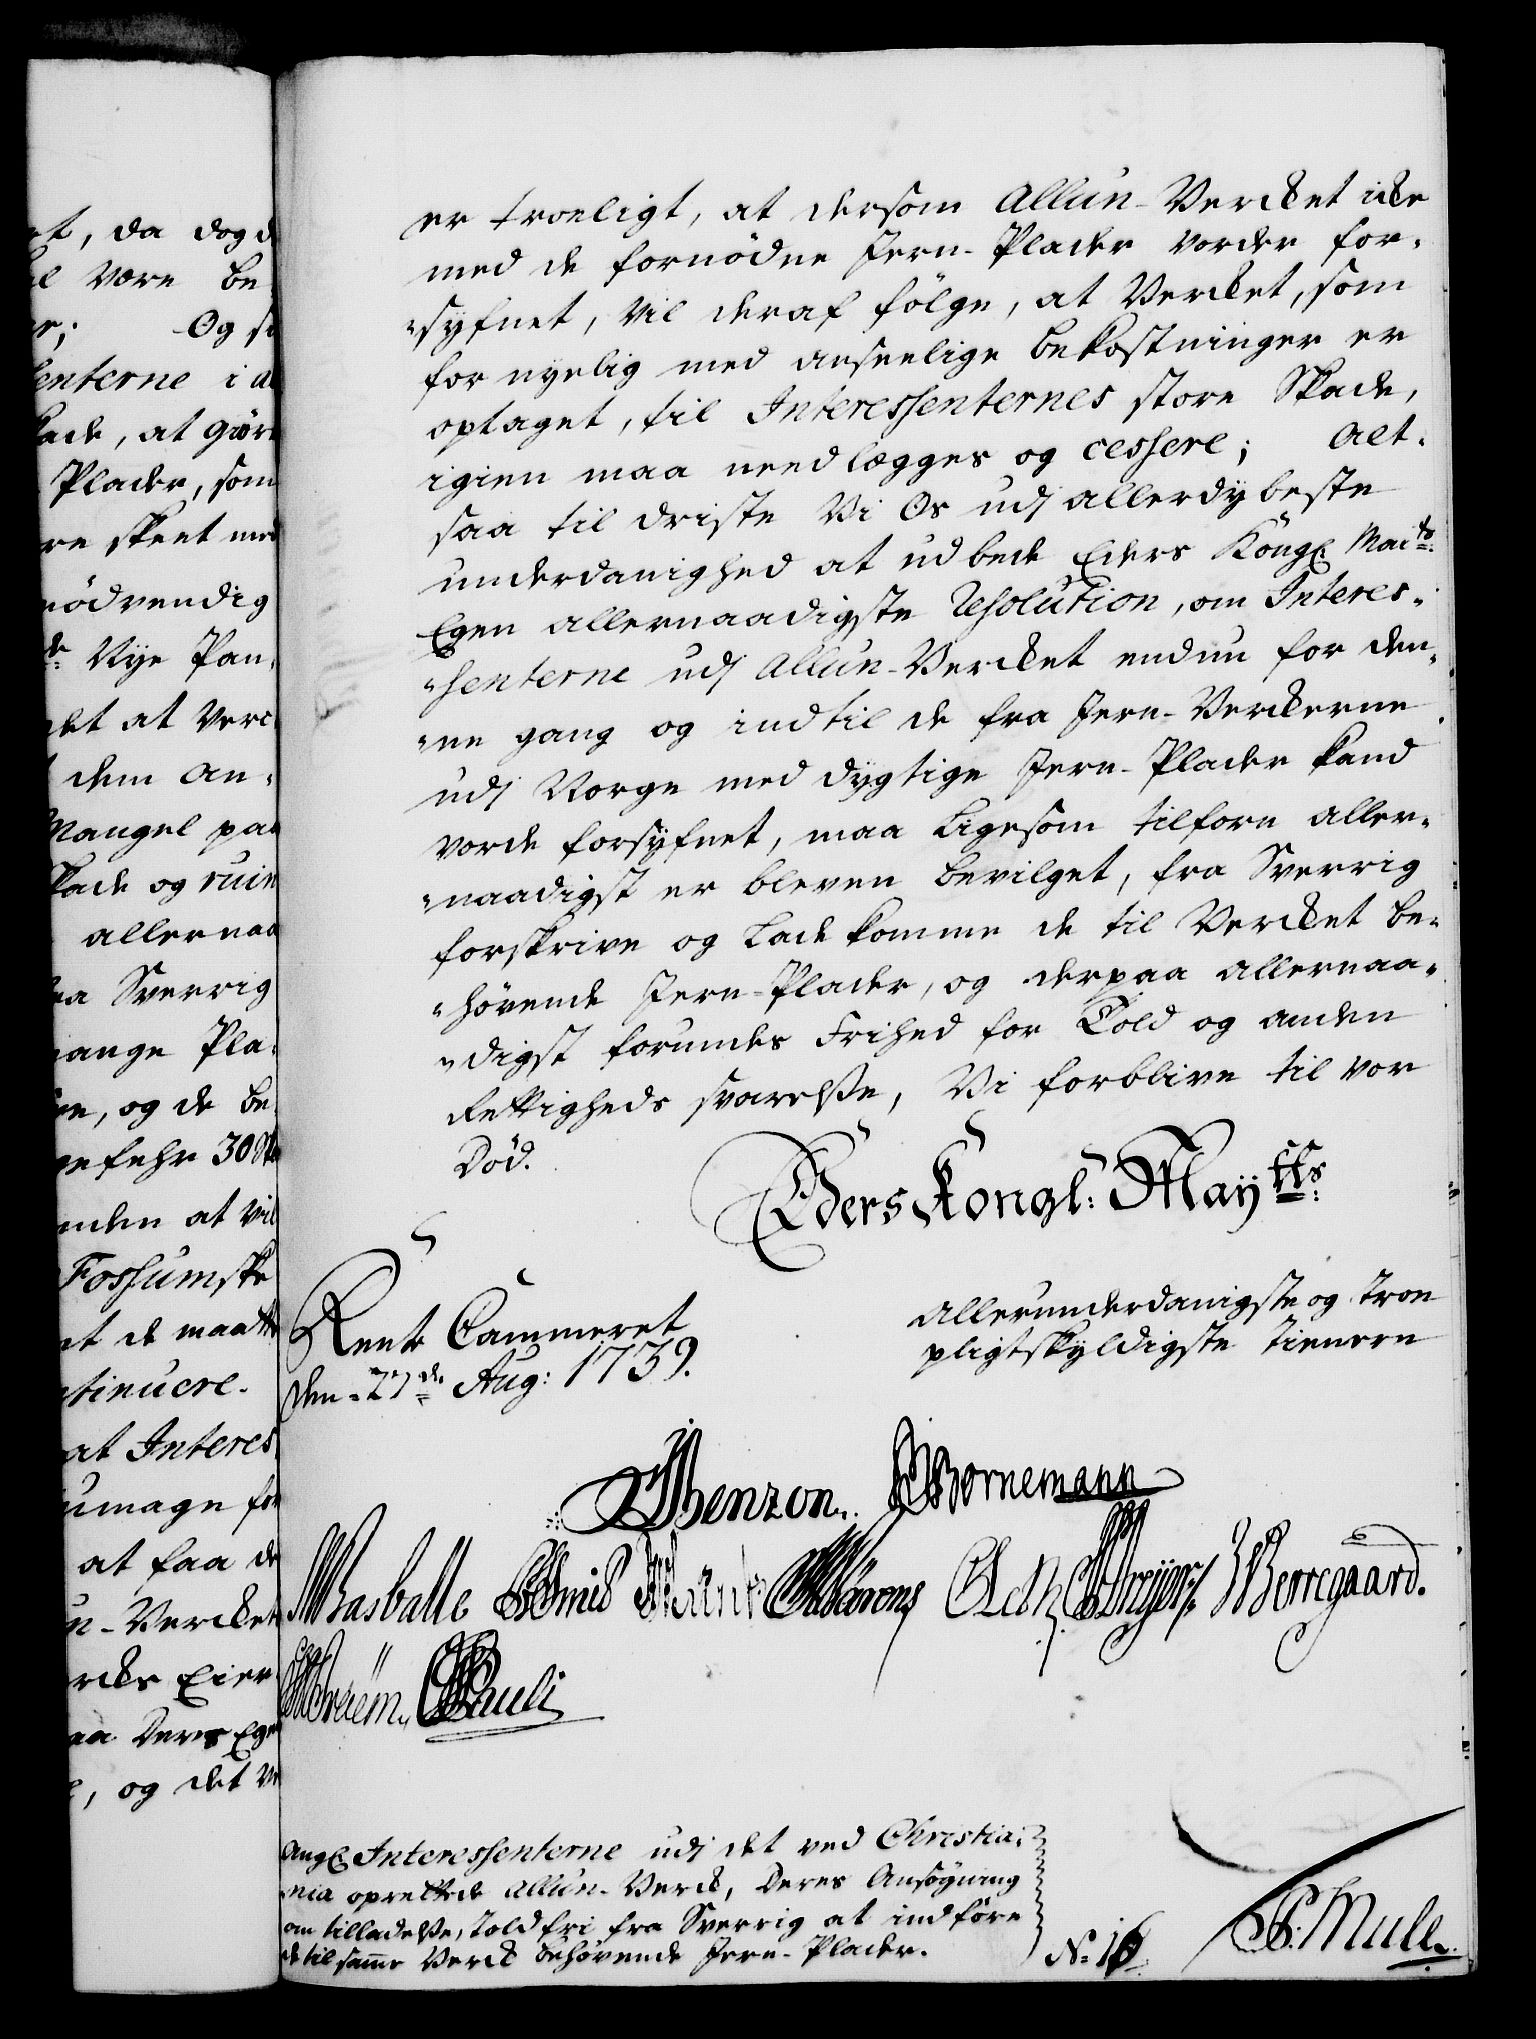 et, da dog d
el være be
er; Og si
senterne i al
kade, at giøre
Plader, som
re skeet med
nödvendig
de Nye Pan,
det at Verc
dem an,
Mangel paa
kade og ruin
allernaa
ra Sverrig
mange Pla,
en, og de be
gefehr 30 Stk
nden at vil
Fossumske
et de maatte
tinuere.
at Interes
umage for
at faa de
n-Vercket
rcks Eier
aa Deres Ege
e, og det Ve
er troeligt, at dersom Allun-Vercket icke
med de fornödne Jern-Plader vorder for-
„syfnet, vil deraf fölge, at Vercket, som
for nyelig med anseelige bekostninger er
optaget, til Interessenternes store Skade,
igien maa needlægges og cessere; Alt-
saa til driste Vi Os udj allerdybeste
underdanighed at udbede Eders Kongl. Maits:
Egen allernaadigste Resolution, om Interes-
„senterne udj Allun-Vercket endnu for den-
„ne gang og indtil de fra Jern-Verckerne
udj Norge med dygtige Jern-Plader kand
vorde forsyfnet, maa ligesom tilforn aller-
„naadigst er bleven bevilget, fra Sverrig
forskrive og lade komme de til Vercket be-
„hövende Jern-Plader, og derpaa allernaa-
„digst forundes Frihed for Told og anden
Rettigheds svarelße, Vi forblive til vor
Död.
Eders Kongl: Mayts:
Rente Cammeret
den 27de Aug: 1739.
Allerunderdanigste og troe
pligtskyldigste tienere
Benzon. Bornemann
Basballe Bärens Dreyer Werregaard.
Pauli
Angl. Interessenterne udj det ved Christia,
„nia oprettede Allun-Verck, Deres Ansögning
om tilladelße, Toldfri fra Sverrig at indföre
de til samme Verck behövende Jern-Plader.
N: 16
Mule.